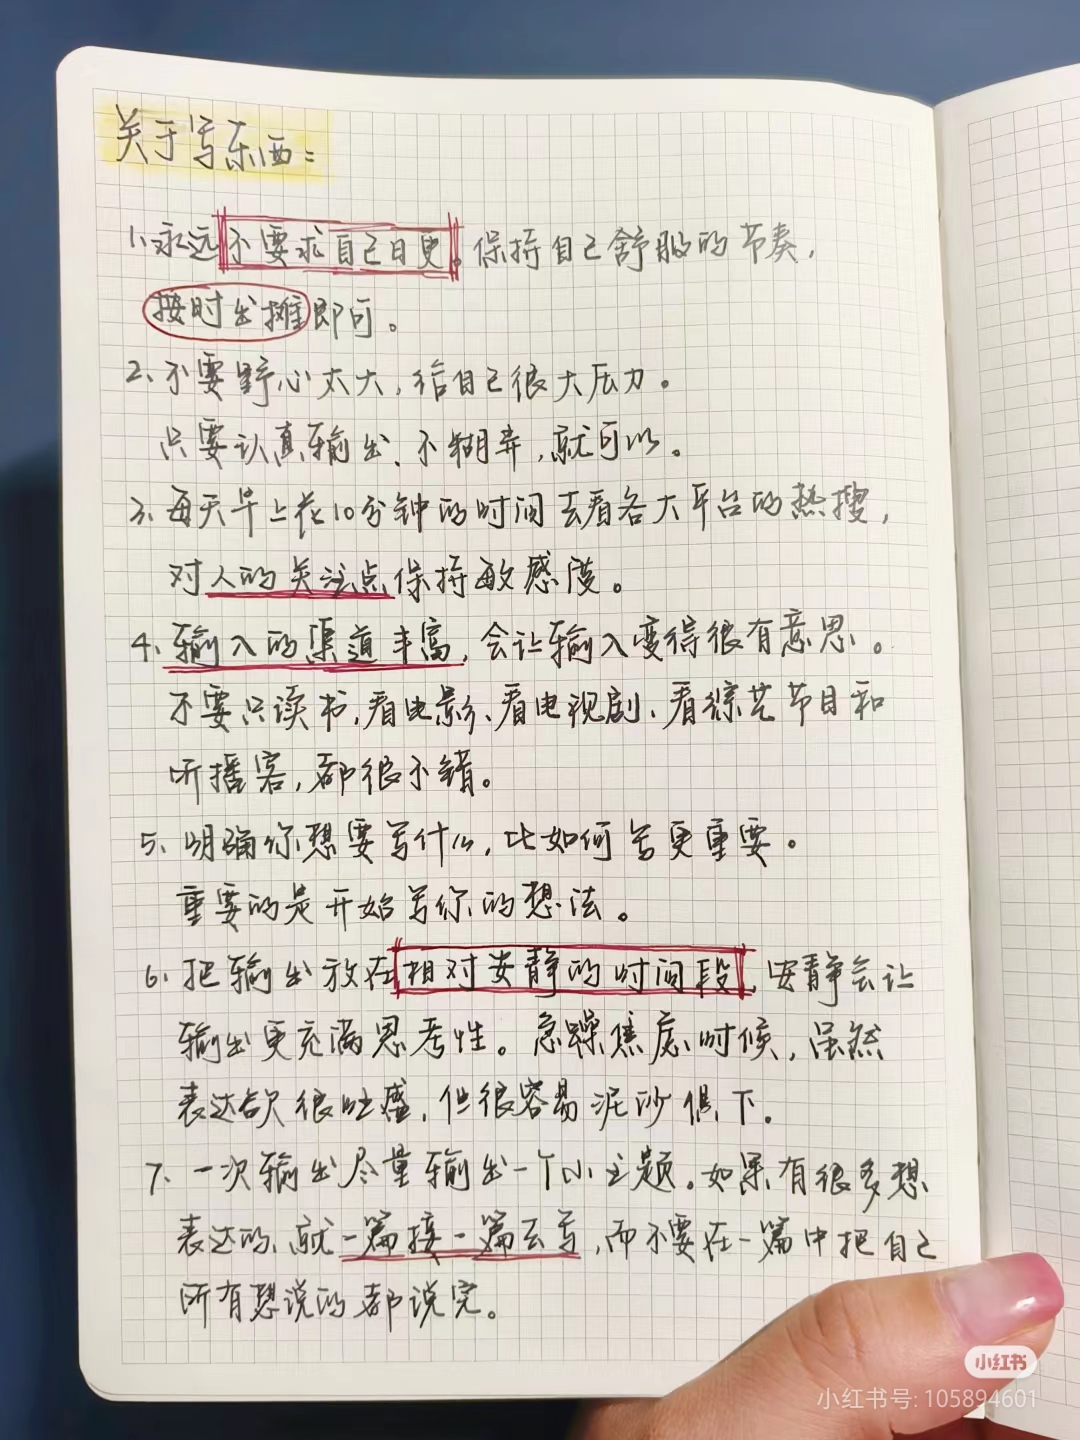 关于写东西：
1、永远不要求自己日更。保持自己舒服的节奏，
按时出摊即可。
2、不要野心太大，给自己很大压力。
只要认真输出、不糊弄，就可以。
3、每天早上花10分钟的时间去看各大平台的热搜，
对人的关注点保持敏感度。
4、输入的渠道丰富，会让输入变得很有意思。
不要只读书，看电影、看电视剧、看综艺节目和
听播客，都很不错。
5、明确你想要写什么，比如何写更重要。
重要的是开始写你的想法。
6、把输出放在相对安静的时间段，安静会让
输出更充满思考性。急躁焦虑时候，虽然
表达欲很旺盛，但很容易泥沙俱下。
7、一次输出尽量输出一个小主题。如果有很多想
表达的，就一篇接一篇去写，而不要在一篇中把自己
所有想说的都说完。
小红书
小红书号: 105894601